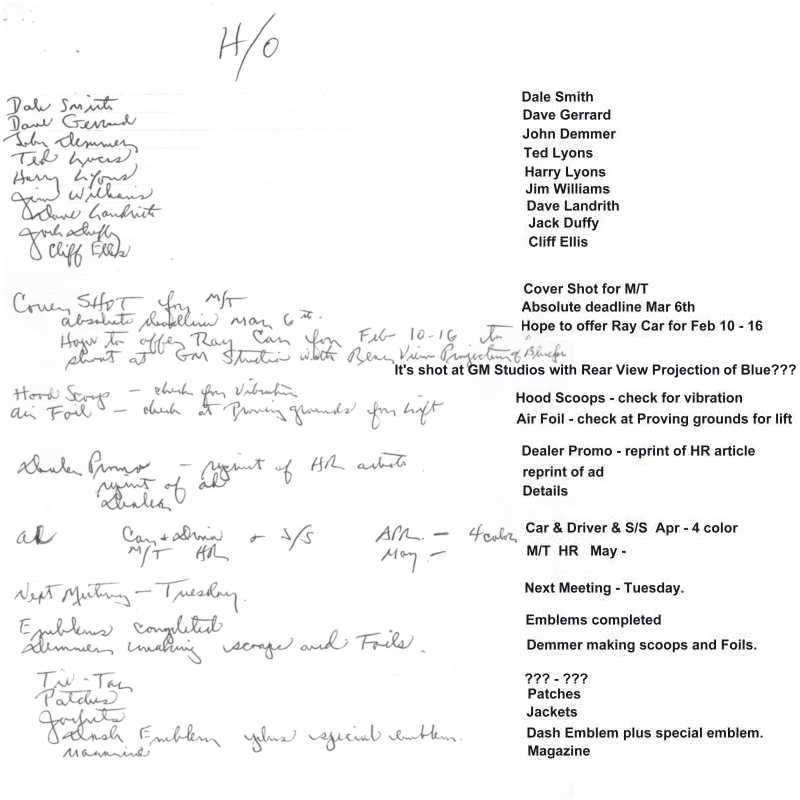 H/O
Dale Smith
Dave Gerrard
John Demmer
Ted Lyons
Harry Lyons
Jim Williams
Dave Landrith
Jack Duffy
Cliff Ellis
Cover SHOT for M/T
absolute deadline Mar 6th.
Hope to offer Ray Car for Feb 10-16 to
shoot at GM Studios with Rear View Projection of
Hood Scoop - check for vibration
Air Foil - check at Proving grounds for lift
Dealer Promo - reprint of HR article
reprint of ad
ad Car & Driver & S/S APR. - 4 color
M/T HR May -
Next Meeting - Tuesday.
Emblems completed
Demmer making scoops and Foils.
Patches
Jackets
Dash Emblem plus special emblem.
Magazine
Dale Smith
Dave Gerrard
John Demmer
Ted Lyons
Harry Lyons
Jim Williams
Dave Landrith
Jack Duffy
Cliff Ellis
Cover Shot for M/T
Absolute deadline Mar 6th
Hope to offer Ray Car for Feb 10 - 16
It's shot at GM Studios with Rear View Projection of Blue???
Hood Scoops - check for vibration
Air Foil - check at Proving grounds for lift
Dealer Promo - reprint of HR article
reprint of ad
Details
Car & Driver & S/S Apr - 4 color
M/T HR May -
Next Meeting - Tuesday.
Emblems completed
Demmer making scoops and Foils.
??? - ???
Patches
Jackets
Dash Emblem plus special emblem.
Magazine